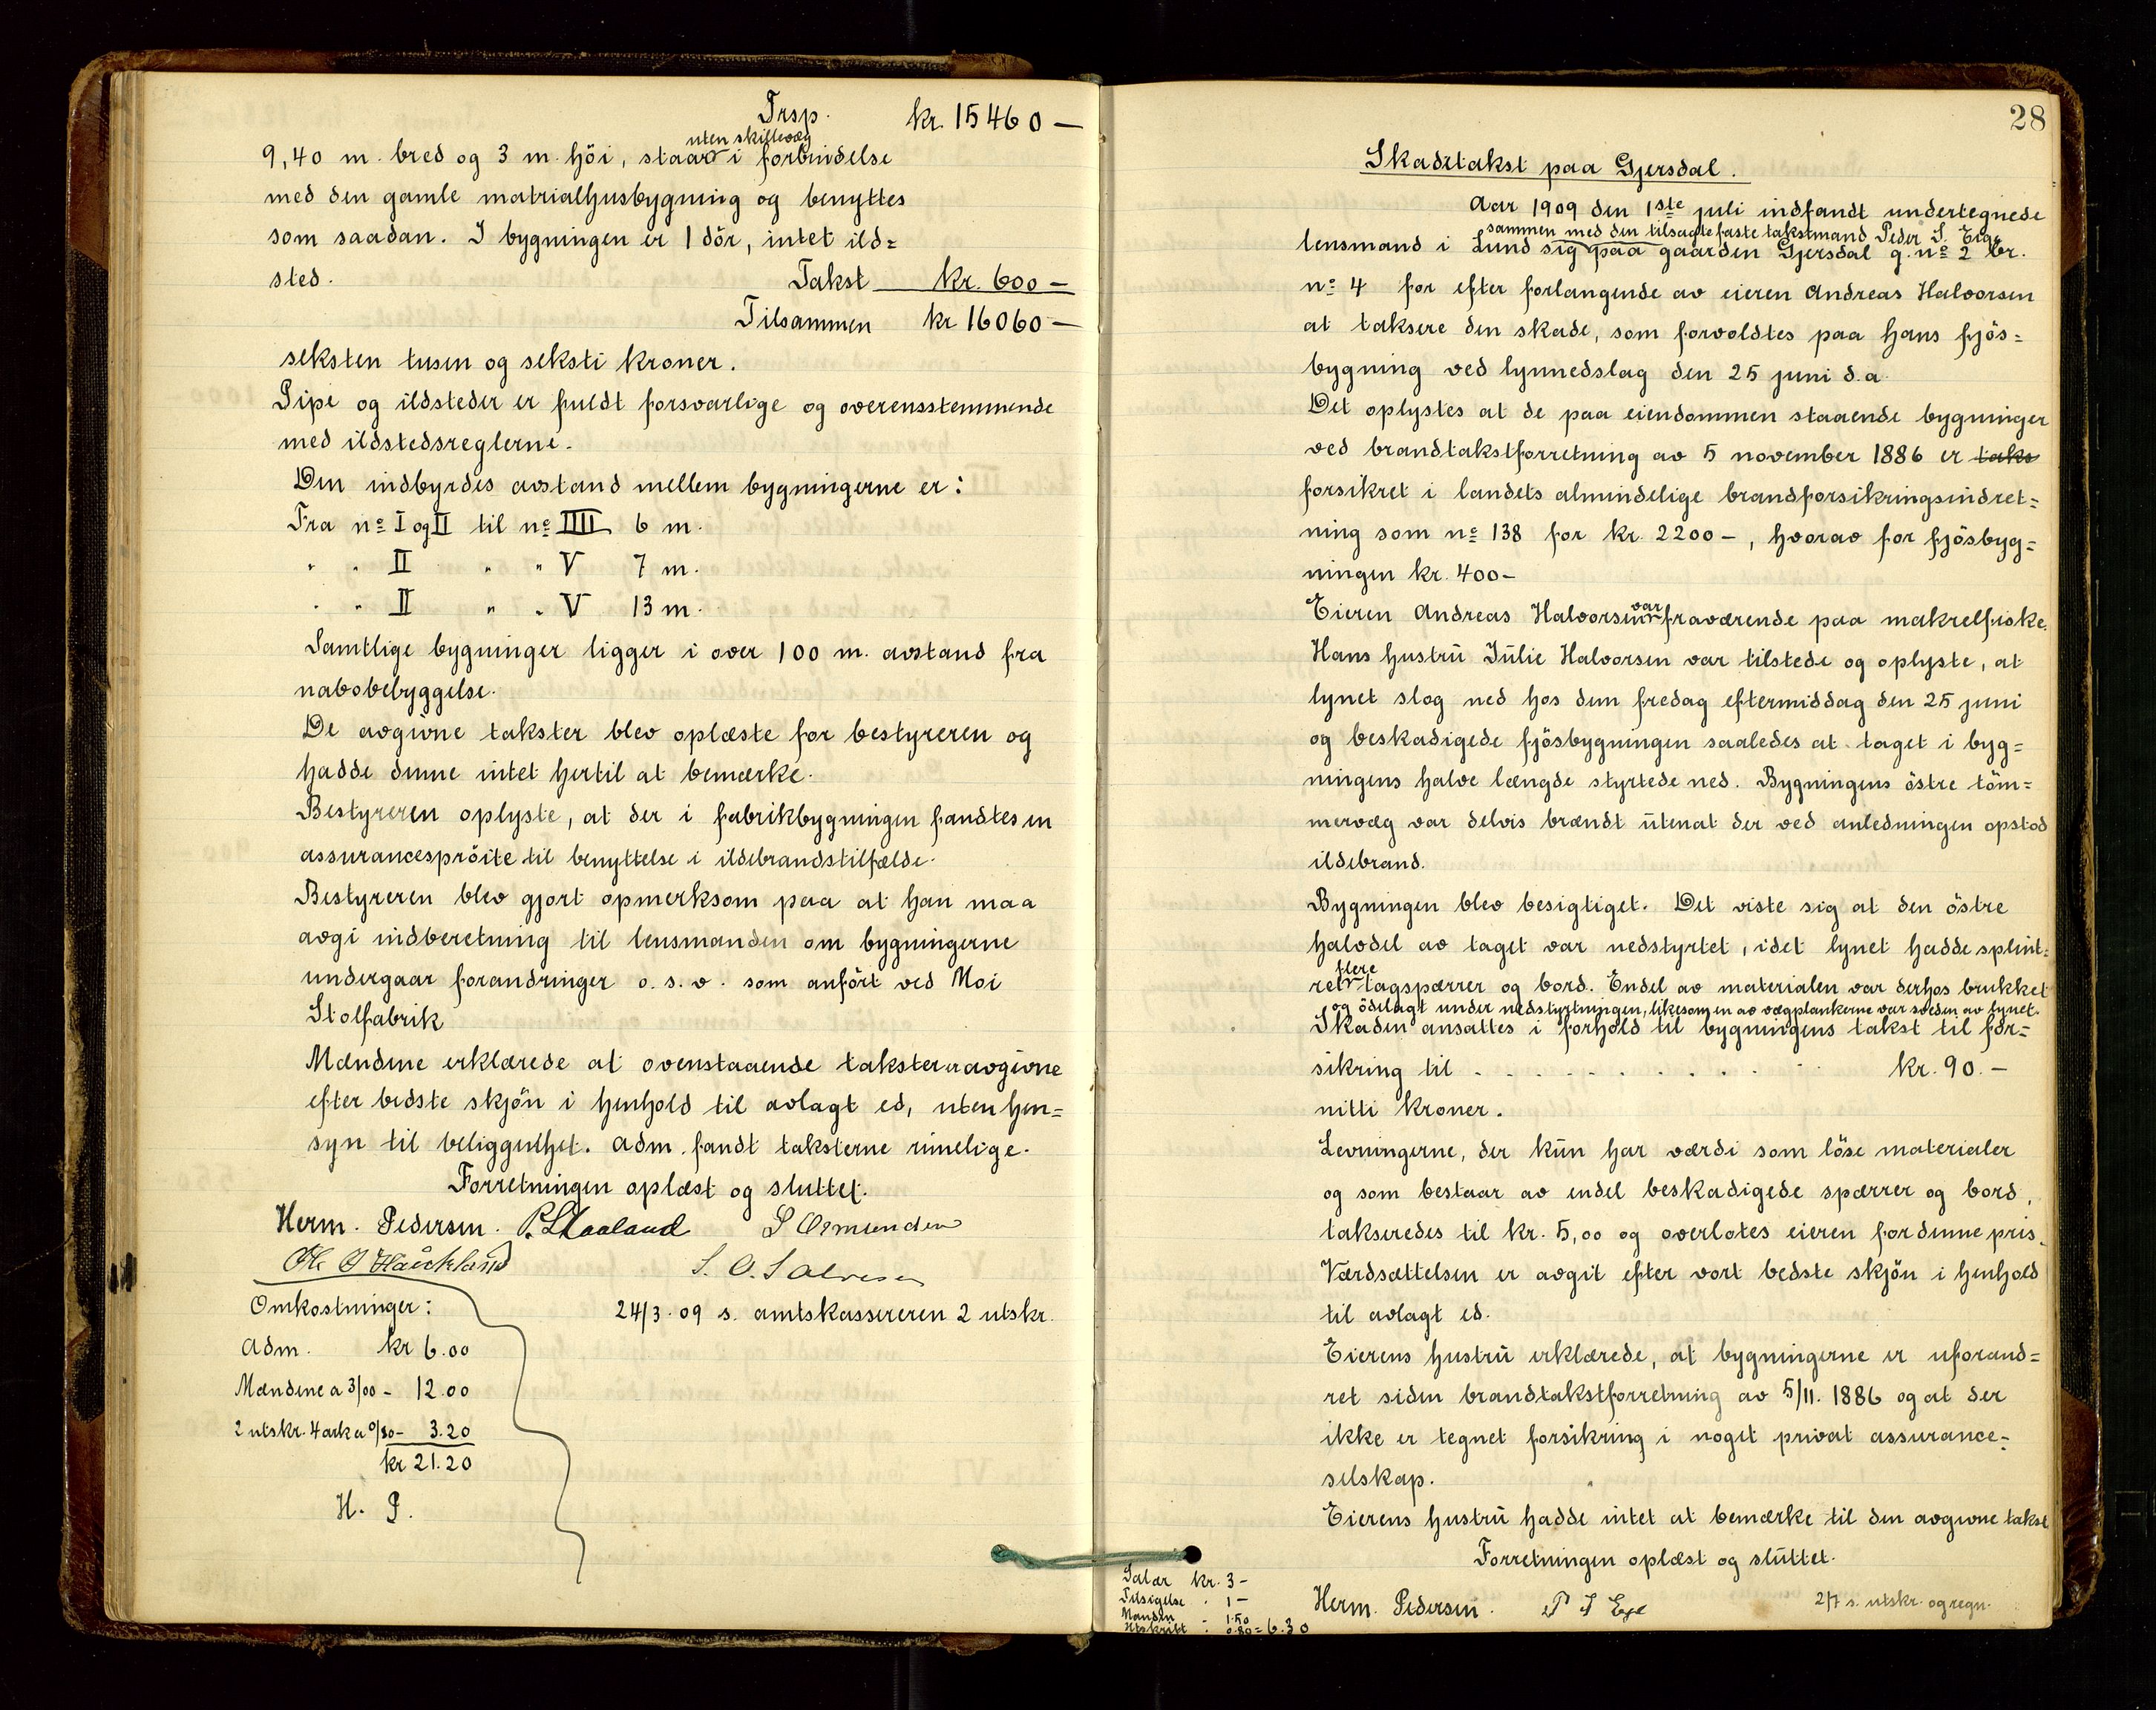 Trsp. kr. 15460 —
uten skillevæg
9,40 m. bred og 3 m. höi, staar i forbindelse
med den gamle matrialhusbygning og benyttes
som saadan. I bygningen er 1 dör, intet ild=
sted. Takst kr. 600 —
Tilsammen kr 16060 —
seksten tusen og seksti kroner.
Pipe og ildsteder er fuldt forsvarlige og overensstemmende
med ildstedsreglerne.
Den indbyrdes avstand mellem bygningerne er:
Fra no I og II til no IIII 6 m.
" " II " " V 7 m.
" " II " " V 13 m.
Samtlige bygninger ligger i over 100 m. avstand fra
nabobebyggelse.
De avgivne takster blev oplæste for bestyreren og
hadde denne intet hertil at bemærke.
Bestyreren oplyste, at der i fabrikbygningen fandtes en
assurancespröite til benyttelse i ildebrandstilfælde.
Bestyreren blev gjort opmerksom paa at han maa
avgi indberetning til lensmanden om bygningerne
undergaar forandringer o. s. v. som anfört ved Moi
Stolfabrik
Mændene erklærede at ovenstaaende takster er avgivne
efter bedste skjön i henhold til avlagt ed, uten hen=
syn til beliggenhet. Adm. fandt taksterne rimelige.
Forretningen oplæst og sluttet.
Herm. Pedersen. P. S. Haaland S Osmundsen
Ole O Hauckland S. O. Salvesen
Omkostninger: 24/3. 09 s. amtskassereren 2 utskr.
Adm. kr 6.00
Mændene a 3/00 - 12.00
2 utskr. 4 ark a 0/80 - 3.20
kr 21.20
H. P.
28
Skadetakst paa Gjersdal.
Aar 1909 den 1ste juli indfandt undertegnede
sammen med den tilsagte faste takstmand Peder S. Eige
lensmand i Lund sig paa gaarden Gjersdal g. no 2 br.
no 4 for efter forlangende av eieren Andreas Halvorsen
at taksere den skade, som forvoldtes paa hans fjös=
bygning ved lynnedslag den 25 juni d.a.
Det oplystes at de paa eiendommen staaende bygninger
ved brandtakstforretning av 5 november 1886 er taks
forsikret i landets almindelige brandforsikringsindret=
ning som no 138 for kr. 2200 -, hvorav for fjösbyg=
ningen kr. 400 -
Eieren Andreas Halvorsen var fraværende paa makrelfiske.
Hans hustru Julie Halvorsen var tilstede og oplyste, at
lynet slog ned hos dem fredag eftermiddag den 25 juni
og beskadigede fjösbygningen saaledes at taget i byg=
ningens halve længde styrtede ned. Bygningens östre töm=
mervæg var delvis brændt utenat der ved anledningen opstod
ildebrand.
Bygningen blev besigtiget. Det viste sig at den östre
halvdel av taget var nedstyrtet, idet lynet hadde splint=
flere
ret tagspærrer og bord. Endel av materialen var derhos brukket
og ödelagt under nedstyrtningen, likesom en av vægplankerne var sveden av lynet.
Skaden ansattes i forhold til bygningens takst til for=
sikring til . . . . . . . . . kr. 90. —
nitti kroner.
Levningerne, der kun har værdi som löse materialer
og som bestaar av endel beskadigede spærrer og bord,
takseredes til kr. 5,00 og overlotes eieren for denne pris.
Værdsættelsen er avgit efter vort bedste skjön i henhold
til avlagt ed.
Eierens hustru erklærede, at bygningerne er uforand=
ret siden brandtakstforretning av 5/11. 1886 og at der
ikke er tegnet forsikring i noget privat assurance=
selskap.
Eierens hustru hadde intet at bemærke til den avgivne takst
Forretningen oplæst og sluttet.
Herm. Pedersen. P S Ege 2/7 s. utskr. og regn.
Salær kr. 3 -
Tilsigelse " 1 -
Manden - 1.50
Utskrift : 0.80 = 6.30